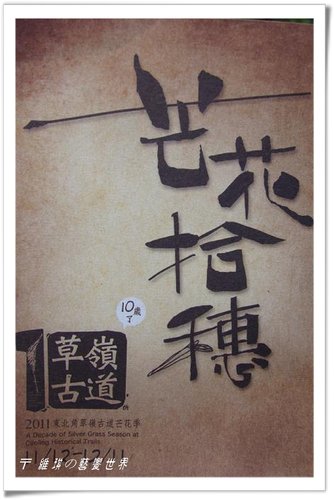 芒花拾穗
10歲
了
草嶺
古道
2011 東北角草嶺古道芒花季
A Decade of Silver Grass Season at
Caoling Historical Trails
11/12-12/11
〒維琪の藝響世界